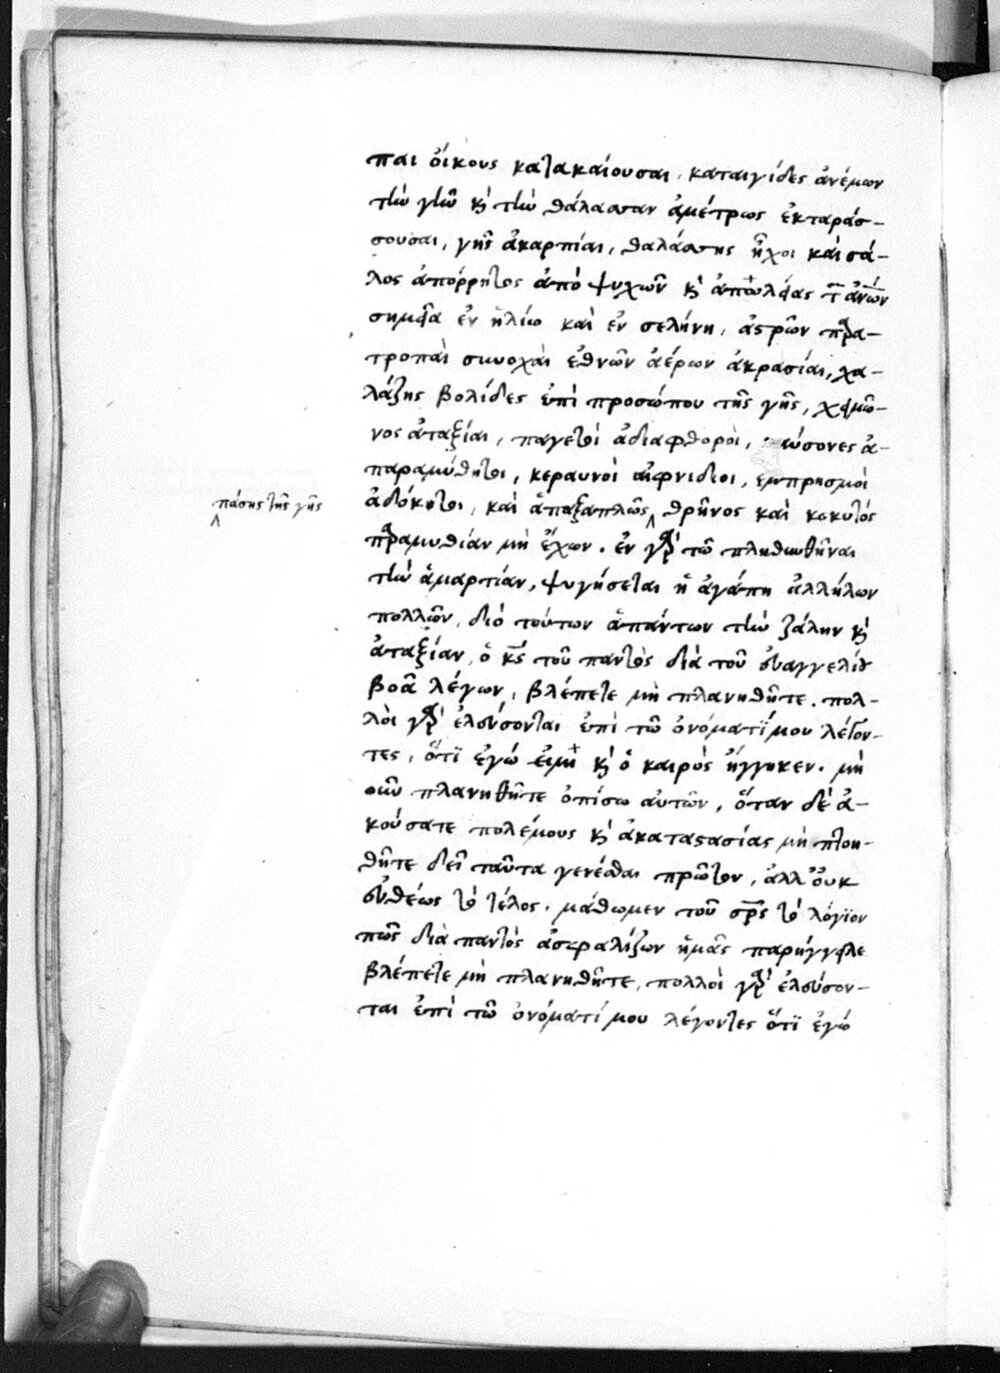 παι οἴκους κατακαίουσαι, καταιγίδες ἀνέμων
τὴν γῆν κὶ τὴν θάλασσαν ἀμέτρως ἐκταράσ-
σουσαι, γῆς ἀκαρπίαι, θαλάσσης ἦχοι καὶ σά-
λος ἀπόρρητος ἀπὸ ψυχῶν κὶ ἀπωλείας τ͂ ἀν͞ων
σημεῖα ἐν ἡλίω καὶ ἐν σελήνη, ἀστρῶν παρα-
τροπαὶ συνοχαὶ ἐθνῶν ἀέρων ἀκρασίαι, χα-
λάζης βολίδες ἐπὶ προσώπου τῆς γῆς, χειμῶ-
νος ἀταξίαι, παγετοὶ ἀδιαφθοροὶ, καύσονες ἀ-
παραμύθητοι, κεραυνοὶ αἰφνιδιοι, εμπρησμοὶ
πάσης τῆς γῆς
ἀδόκητοι, καὶ ἁπαξαπλῶς θρῆνος καὶ κοκυτὸς
παραμυθίαν μὴ ἔχων. ἐν γὰρ τῶ πληθυνθῆναι
τὴν ἁμαρτίαν, ψυγήσεται ἡ ἀγάπη ἀλλήλων
πολλῶν, διὸ τούτων ἁπάντων τὴν ζάλην κὶ
ἀταξίαν, ὁ κ͞ς τοῦ παντὸς διὰ τοῦ εὐαγγελίου
βοᾶ λέγων, βλέπετε μὴ πλανηθῆτε. πολ-
λοὶ γὰρ ἐλεύσονται ἐπὶ τῶ ὀνόματί μου λέγον-
τες, ὅτι ἐγώ εἰμι κὶ ὁ καιρὸς ἤγγικεν. μὴ
οὖν πλανηθῆτε ὀπίσω αὐτῶν, ὅταν δὲ ἀ-
κούσατε πολέμους κὶ ἀκαταστασίας μὴ πτοη-
θῆτε δεῖ ταῦτα γενέσθαι πρῶτον, ἀλλ' οὐκ
εὐθέως τὸ τέλος. μάθωμεν τοῦ σρ͞ς τὸ λόγιον
πῶς διὰ παντὸς ἀσφαλίζων ἡμᾶς παρήγγειλε
βλέπετε μὴ πλανηθῆτε, πολλοὶ γὰρ ἐλεύσον-
ται ἐπὶ τῶ ὀνόματί μου λέγοντες ὅτι ἐγώ